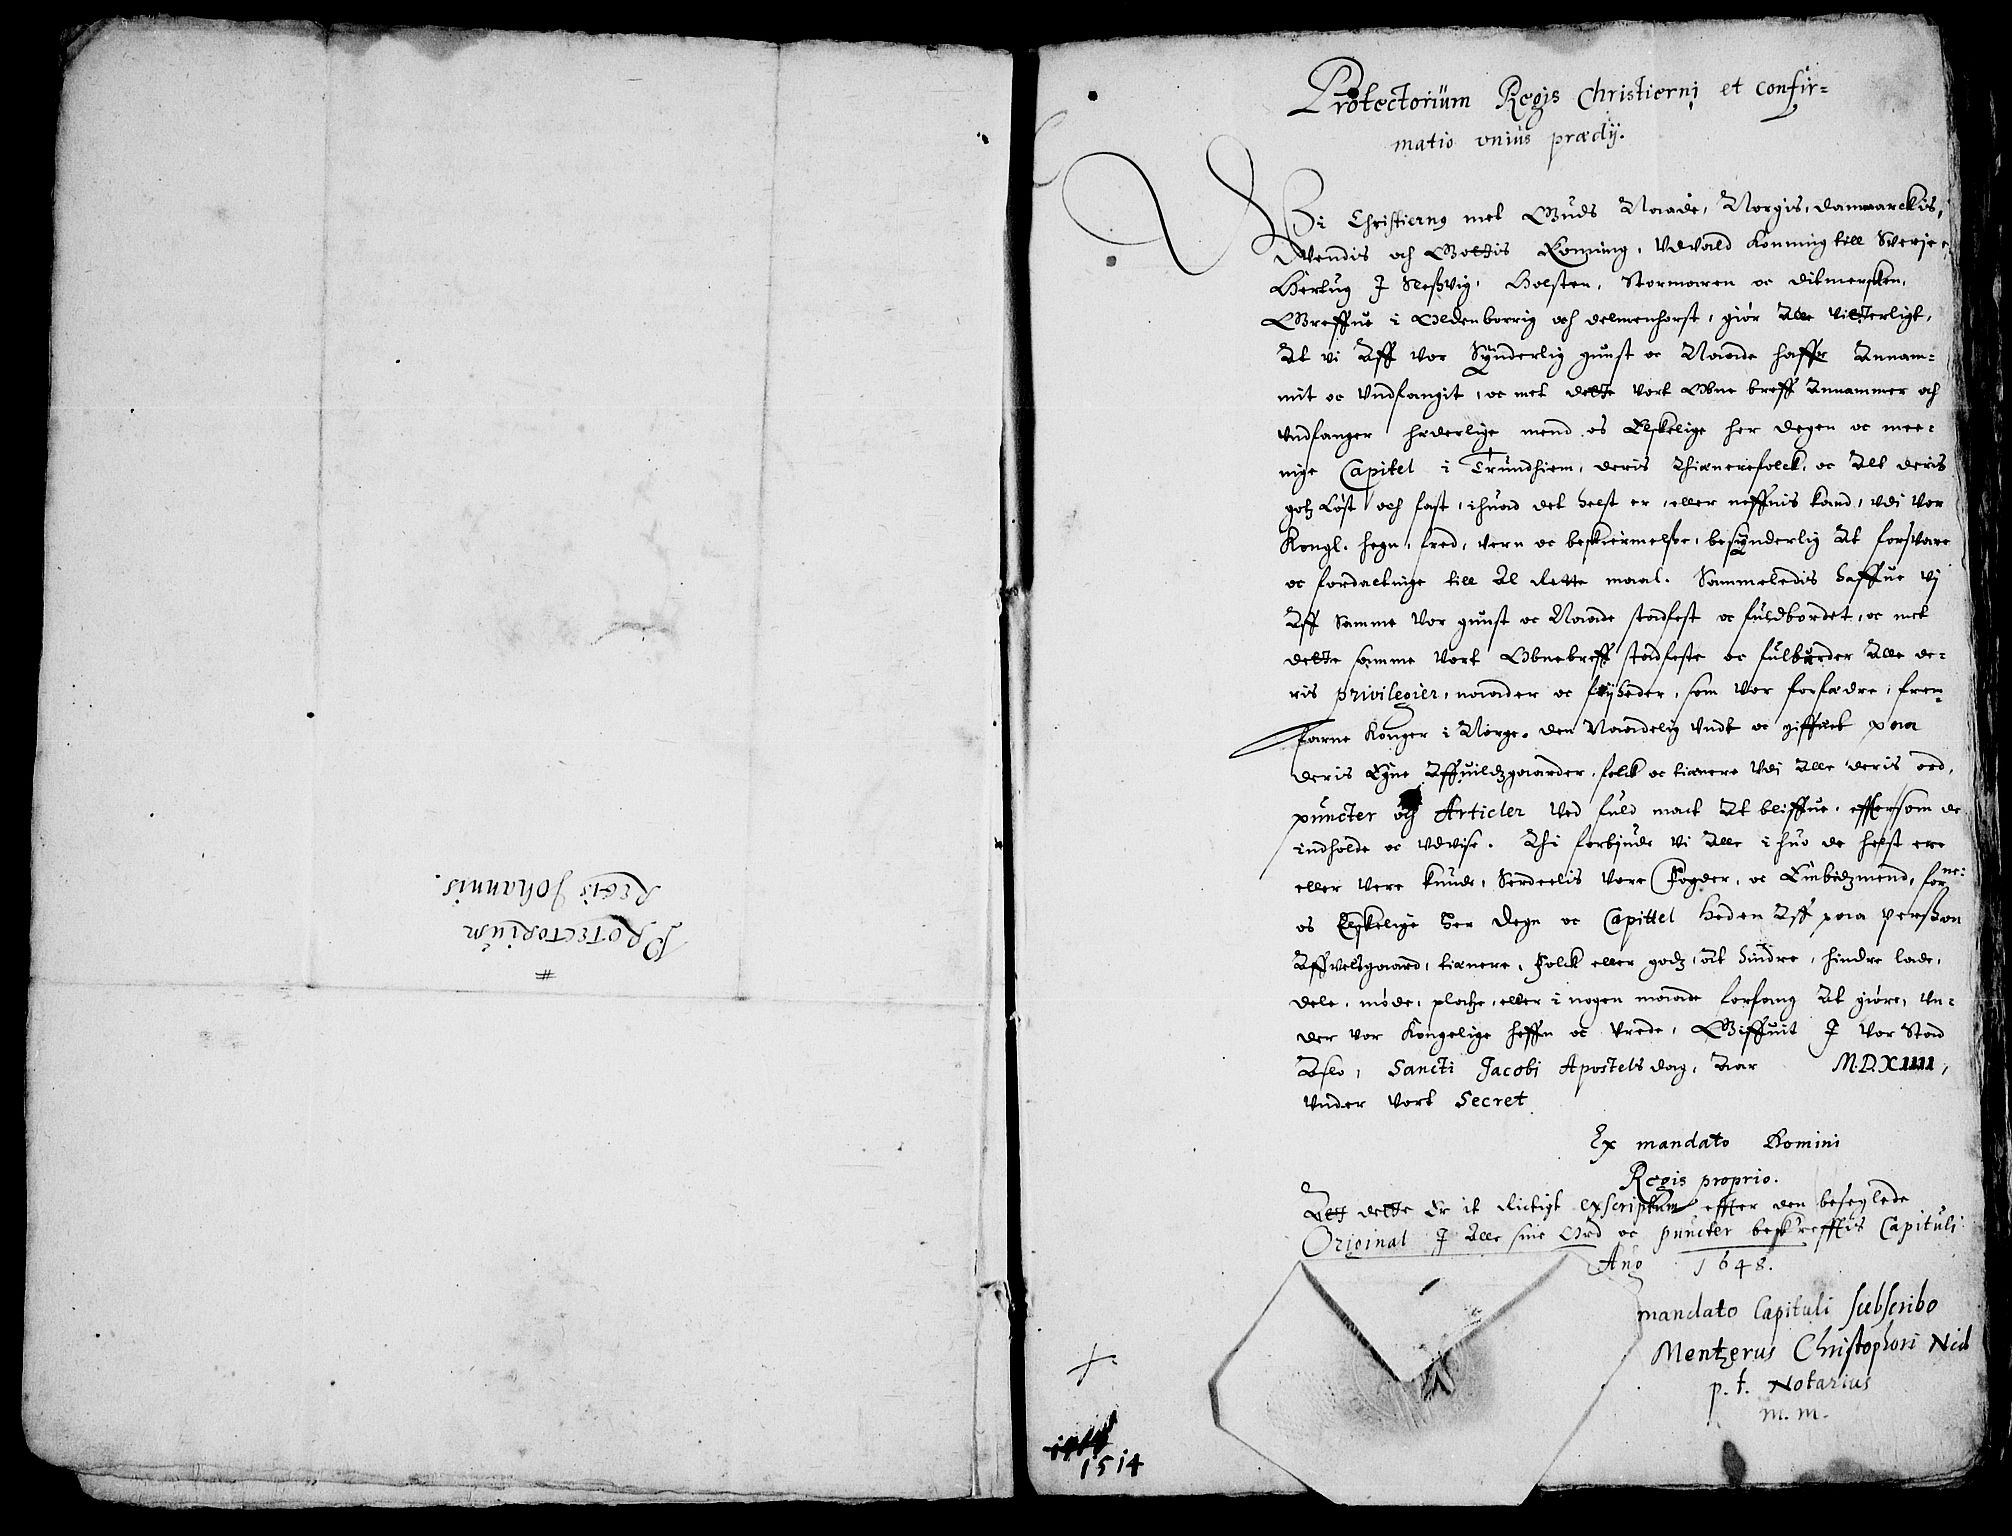 Protectorium
Regis Johannis.
Protectorium Regis Christierni et confir=
matio unius prædij.
Vi Christiern met Guds Naade, Norgis, Danmarckis,
Wendis och Gottis Konning, Udvald Konning till Sverje
Hertug I Sleßvig, Holsten, Stormaren oc Ditmersken,
Greffue i Oldenborrig och Delmenhorst, giør Alle vitterligt,
At vi Aff vor Synderlig gunst oc Naade haffr Annam=
mit oc Undfangit, oc met dette vort Obne breff Annammer och
Undfanger hæderlige mend os Elskelige her Degen oc mee=
nige Capitel i Trundhiem, deris Thienerefolck, oc Alt deris
gotz Løst och fast, ihuad det helst er, eller neffnis kand, udi vor
Kongl. hegn, fred, vern oc beskiermelse, besynderlig At forsvare
oc fordactinge till Al Rette maal. Sammeledis haffue vj
Aff Samme vor gunst oc Naade stadfest oc fuldbordet, oc met
dette samme vort Obnebreff stadfeste oc fulburder Alle de=
ris privilegier, naader oc frijheder, som vor forfædre, frem=
farne Konger i Norge, den Naadelig undt oc giffuet paa
deris Egne Affuildzgaarder, folck oc tienere Udi Alle deris ord,
puncter och Articler Ved fuld mact At bliffue, effttersom de
indholde oc udvise. Thi forbjude vi Alle i huo de helst ere
eller vere kunde, Serdeelis vore Fogder, oc Embidzmend, forne:
os Elskelige Her Degn oc Capittel heden Aff paa Perßon
Affvelsgaard, tienere, Folck eller godz, At hindre, hindre lade,
dele, møde, platze, eller i nogen maade forfang At giøre, Un=
der vor Kongelige heffn oc Vrede, Giffuit I vor Stad
Aslo, Sancti Jacobi Apostels dag, Aar M.D.XIIII,
Under vort Secret
Ex mandato Domini
Regis proprio.
Att dette Er it Rictigt exscriptum effter den beseglede
Original I Alle sine Ord oc puncter beskreffvis Capituli
Ano 1648.
mandato Capituli subscribo
Mentzerus Christophori Nid
p. t. Notarius
m. m.
1514